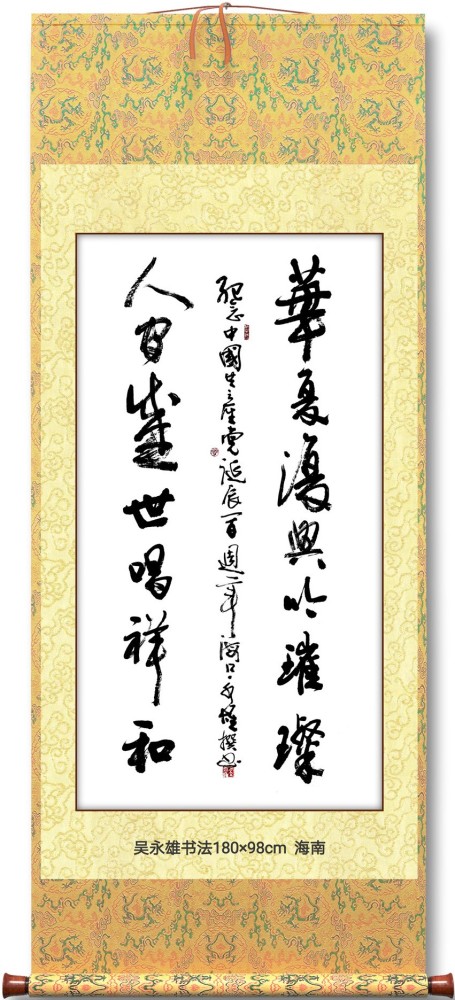 華夏復興吟璀璨
紀念中國共産党誕辰一百週年海口永雄撰书
人间盛世唱祥和
吴永雄书法180×98cm 海南